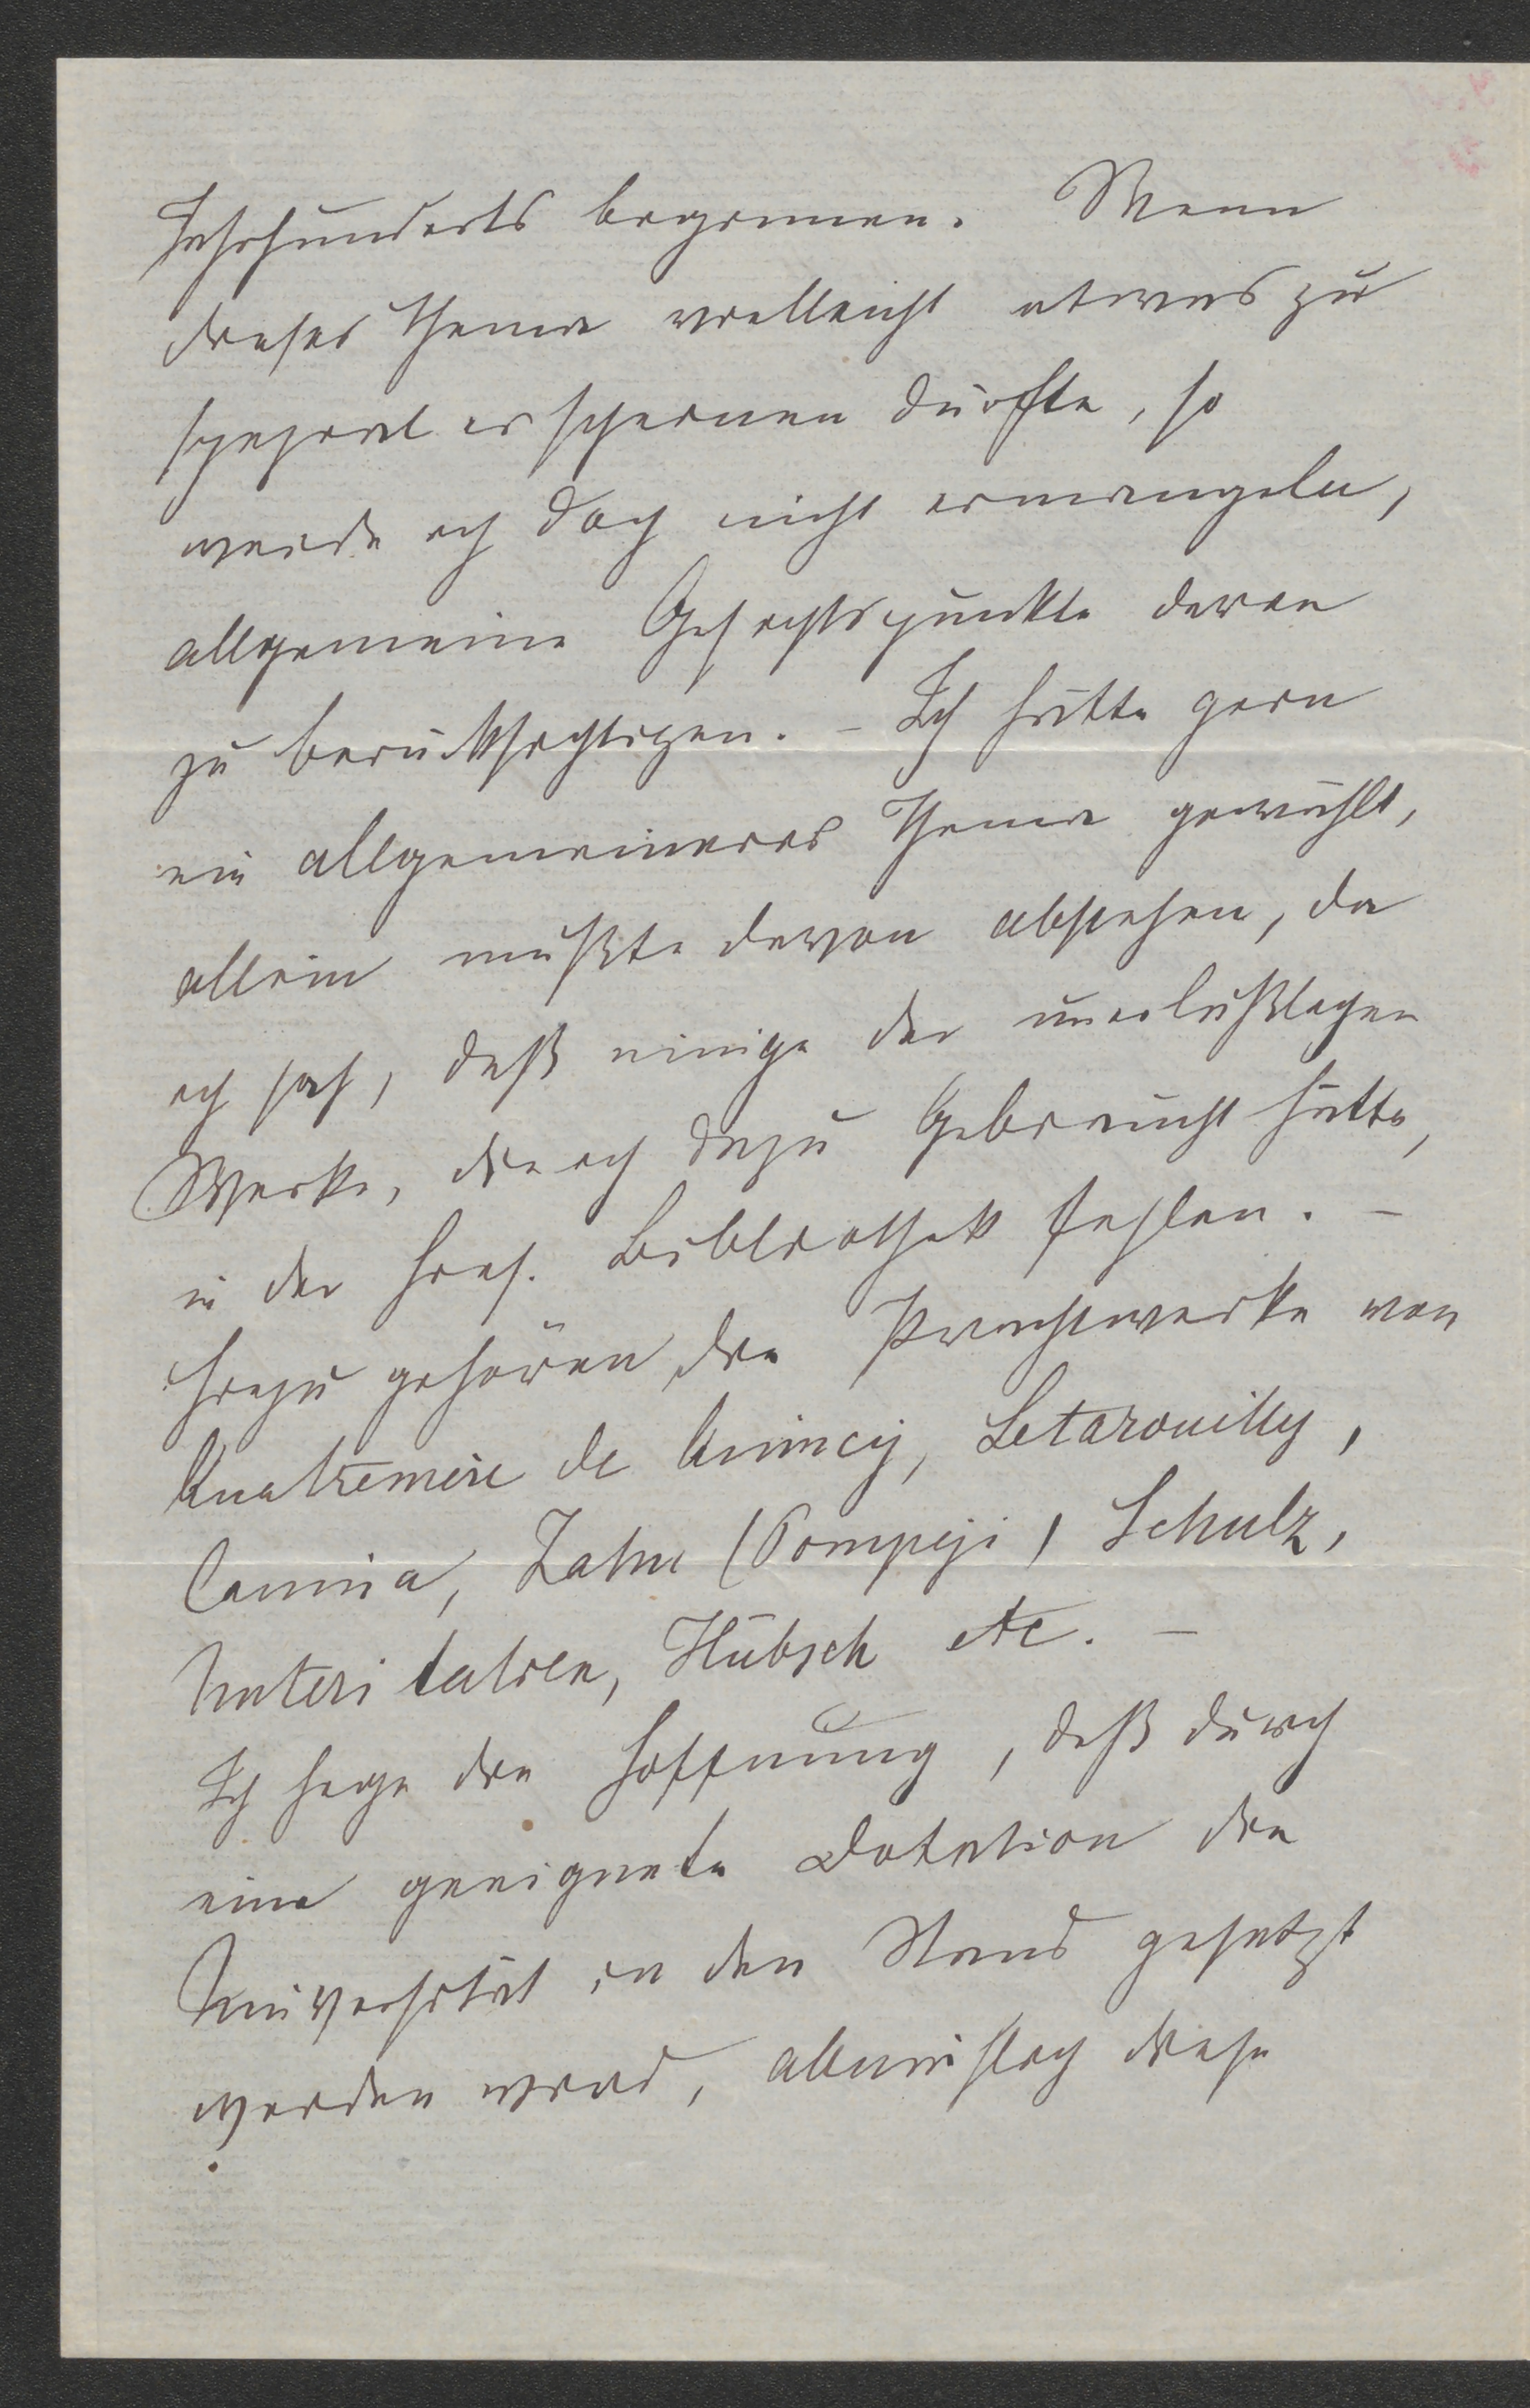 Jahrhunderts begonnen. Wenn
dieses Thema vielleicht etwas zu
speziel erscheinen dürfte, so
werde ich doch nicht ermangeln,
allgemeine Gesichtspunkte daran
zu berücksichtigen. – Ich hätte gern
ein allgemeineres Thema gewählt,
allein mußte davon abstehen, da
ich sah, daß einige der unerläßlichen
Werke, die ich dazu gebraucht hätte,
in der hies. Bibliothek fehlen. –
Hiezu gehören die Prachtwerke von
Quatremère de Quincy, Letarouilly,
Canina, Zahn (Pompeji) Schulz,
Unteritalien, Hübsch etc. –
Ich hege die Hoffnung, daß durch
eine geeignete Dotation die
Universität in den Stand gesetzt
werden wird, allmählich diese